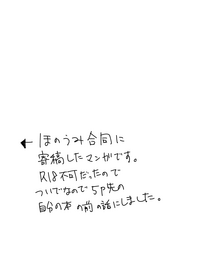 ← ほのうみ合同に
寄稿したマンガです。
R18不可だったので
ついでなので5p先の
自分の本の前の話にしました。